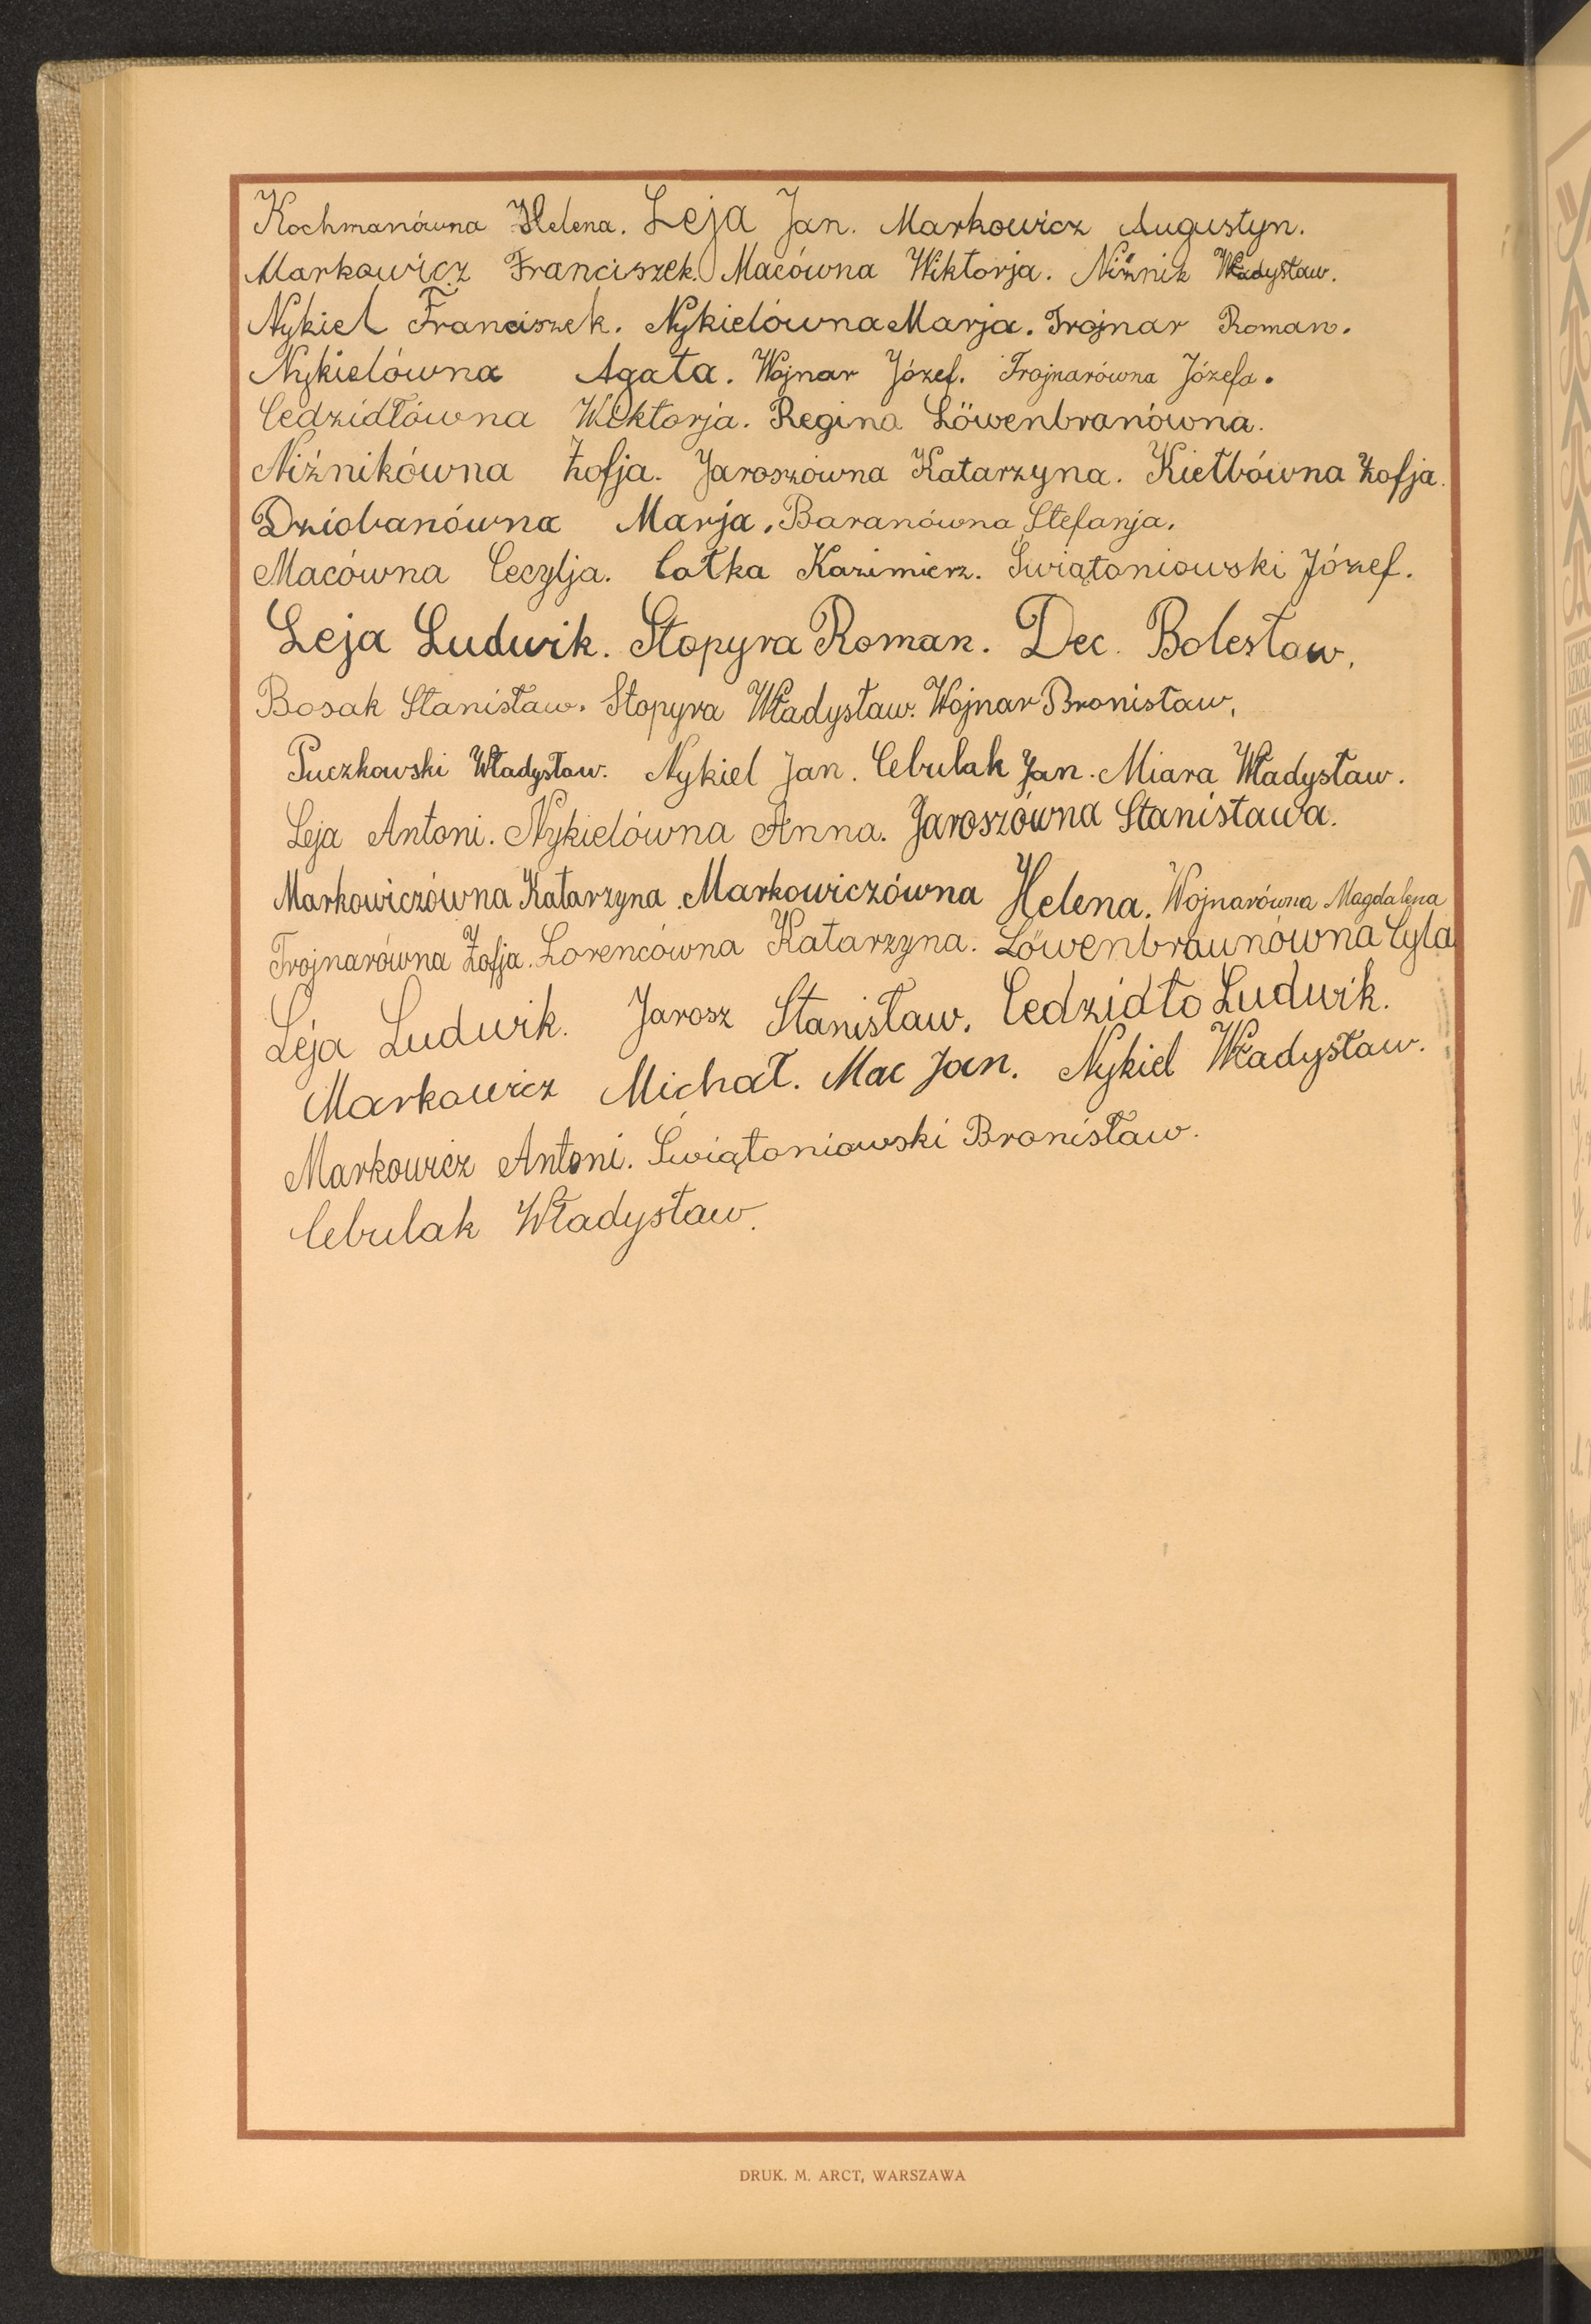 Kochmanówna Helena. Leja Jan. Markowicz Augustyn.
Markowicz Franciszek. Macówna Wiktorja. Niżnik Władysław.
Nykiel Franciszek. Nykielówna Marja. Trojnar Roman.
Nykielówna Agata. Wojnar Józef. Trojnarówna Józefa.
Cedzidłówna Wiktorja. Regina Löwenbranówna.
Niżnikówna Zofja. Jaroszówna Katarzyna. Kiełbówna Zofja.
Dziobanówna Marja. Baranówna Stefanja.
Macówna Cecylja. Całka Kazimierz. Świątoniowski Józef.
Leja Ludwik. Stopyra Roman. Dec. Bolesław.
Bosak Stanisław. Stopyra Władysław. Wojnar Bronisław.
Puczkowski Władysław. Nykiel Jan. Cebulak Jan. Miara Władysław.
Leja Antoni. Nykielówna Anna. Jaroszówna Stanisława.
Markowiczówna Katarzyna. Markowiczówna Helena. Wojnarówna Magdalena
Trojnarówna Zofja. Lorencówna Katarzyna. Löwenbraunówna Cyla
Leja Ludwik. Jarosz Stanisław. Cedzidło Ludwik.
Markowicz Michał. Mac Jan. Nykiel Władysław.
Markowicz Antoni. Świątoniowski Bronisław.
Cebulak Władysław.
DRUK. M. ARCT, WARSZAWA